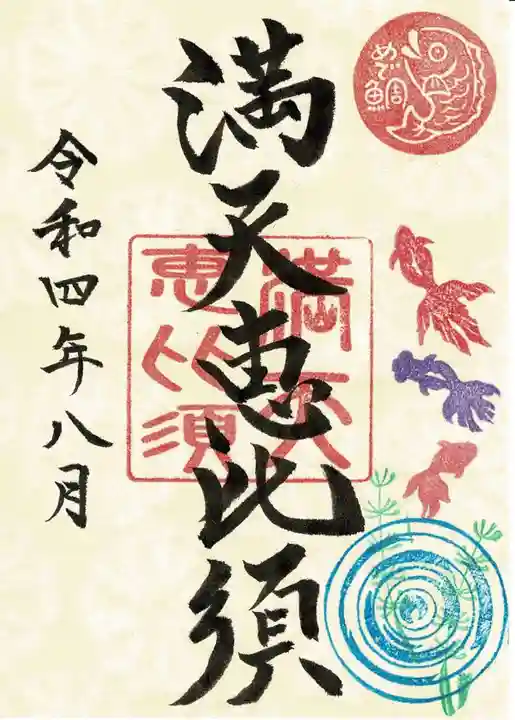 めで鯛
満天恵比須
満天
恵比須
令和四年八月